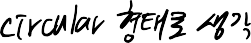 circular 형태로 생각